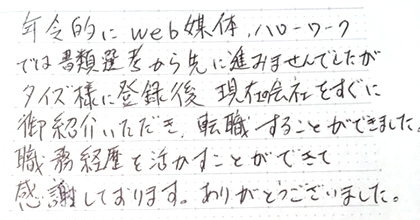 年令的にweb媒体,ハローワーク
では書類選考から先に進みませんでしたが
タイズ様に登録後 現在の会社をすぐに
御紹介いただき、転職することができました。
職務経歴を活かすことができて
感謝しております。ありがとうございました。